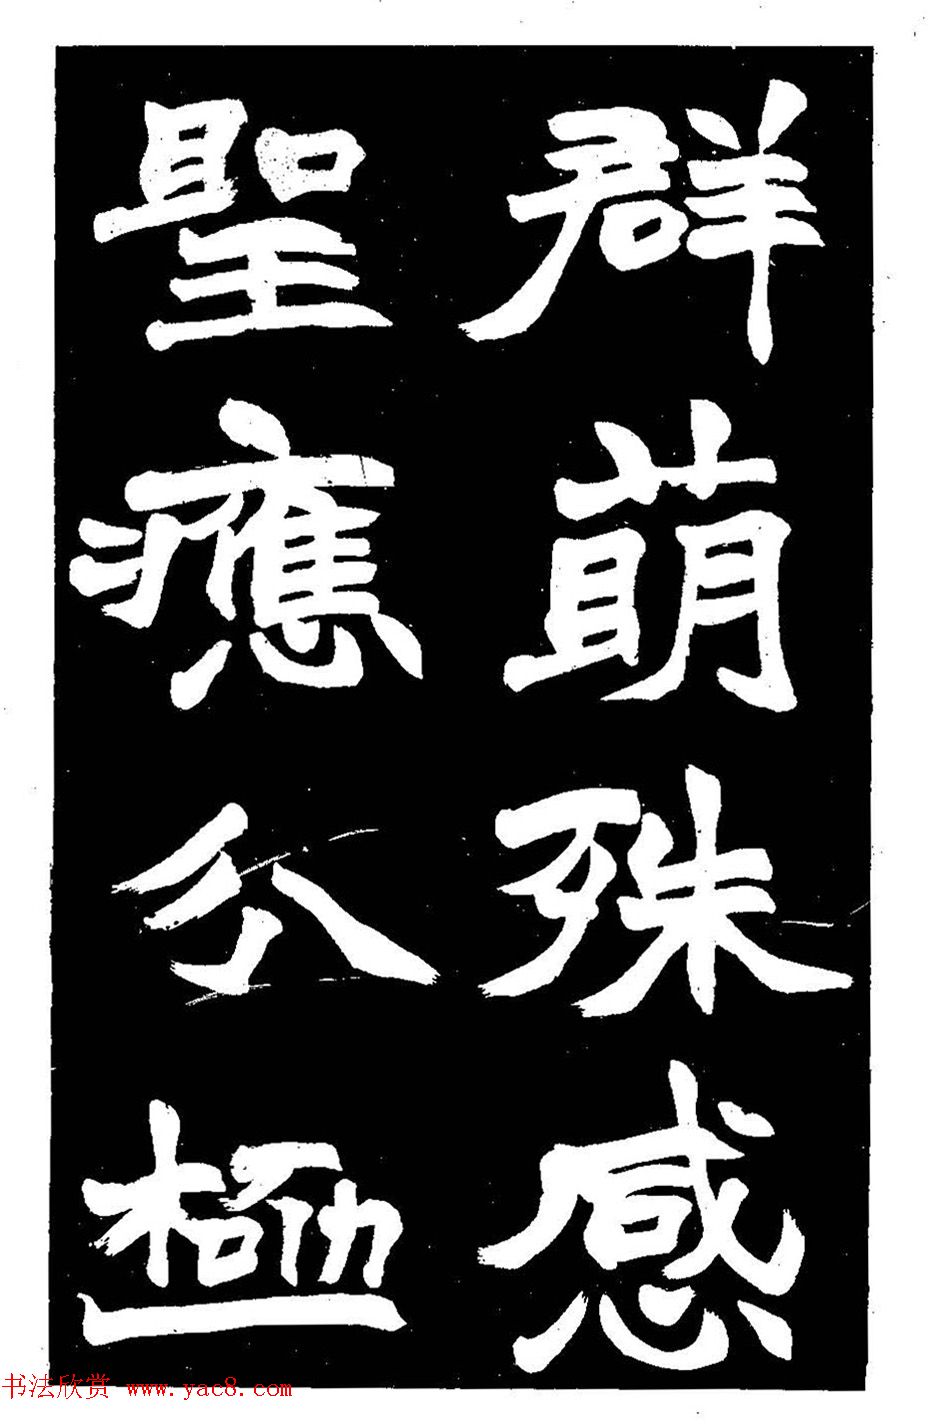 群萌殊感
聖應分極
书法欣赏 www.yac8.com